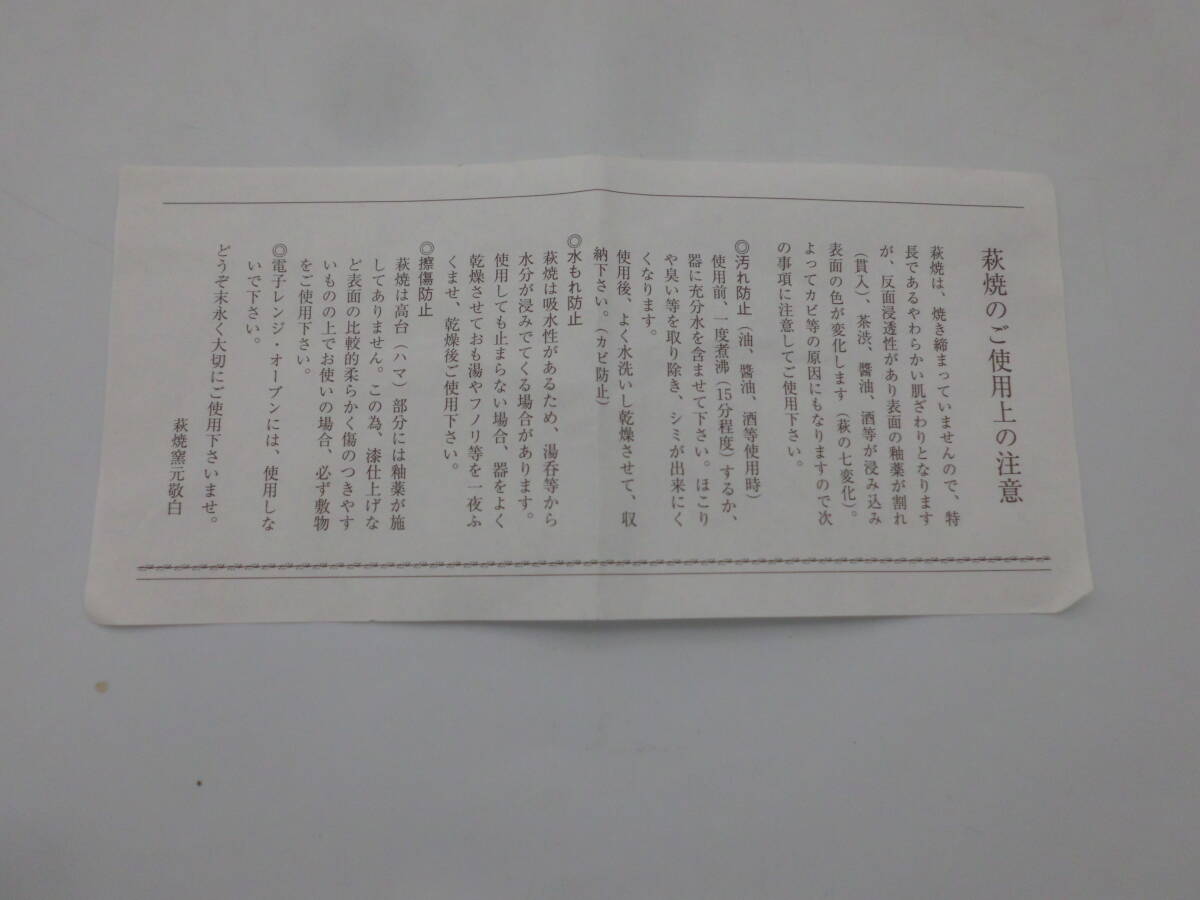 萩焼のご使用上の注意
萩焼は、焼き締まっていませんので、特
長であるやわらかい肌ざわりとなります
が、反面浸透性があり表面の釉薬が割れ
（貫入）、茶渋、醬油、酒等が浸み込み
表面の色が変化します（萩の七変化）。
よってカビ等の原因にもなりますので次
の事項に注意してご使用下さい。
◎汚れ防止（油、醬油、酒等使用時）
使用前、一度煮沸（15分程度）するか、
器に充分水を含ませて下さい。ほこり
や臭い等を取り除き、シミが出来にく
くなります。
使用後、よく水洗いし乾燥させて、収
納下さい。（カビ防止）
◎水もれ防止
萩焼は吸水性があるため、湯呑等から
水分が浸みでてくる場合があります。
使用しても止まらない場合、器をよく
乾燥させておも湯やフノリ等を一夜ふ
くませ、乾燥後ご使用下さい。
◎擦傷防止
萩焼は高台（ハマ）部分には釉薬が施
してありません。この為、漆仕上げな
ど表面の比較的柔らかく傷のつきやす
いものの上でお使いの場合、必ず敷物
をご使用下さい。
◎電子レンジ・オーブンには、使用しな
いで下さい。
どうぞ末永く大切にご使用下さいませ。
萩焼窯元敬白